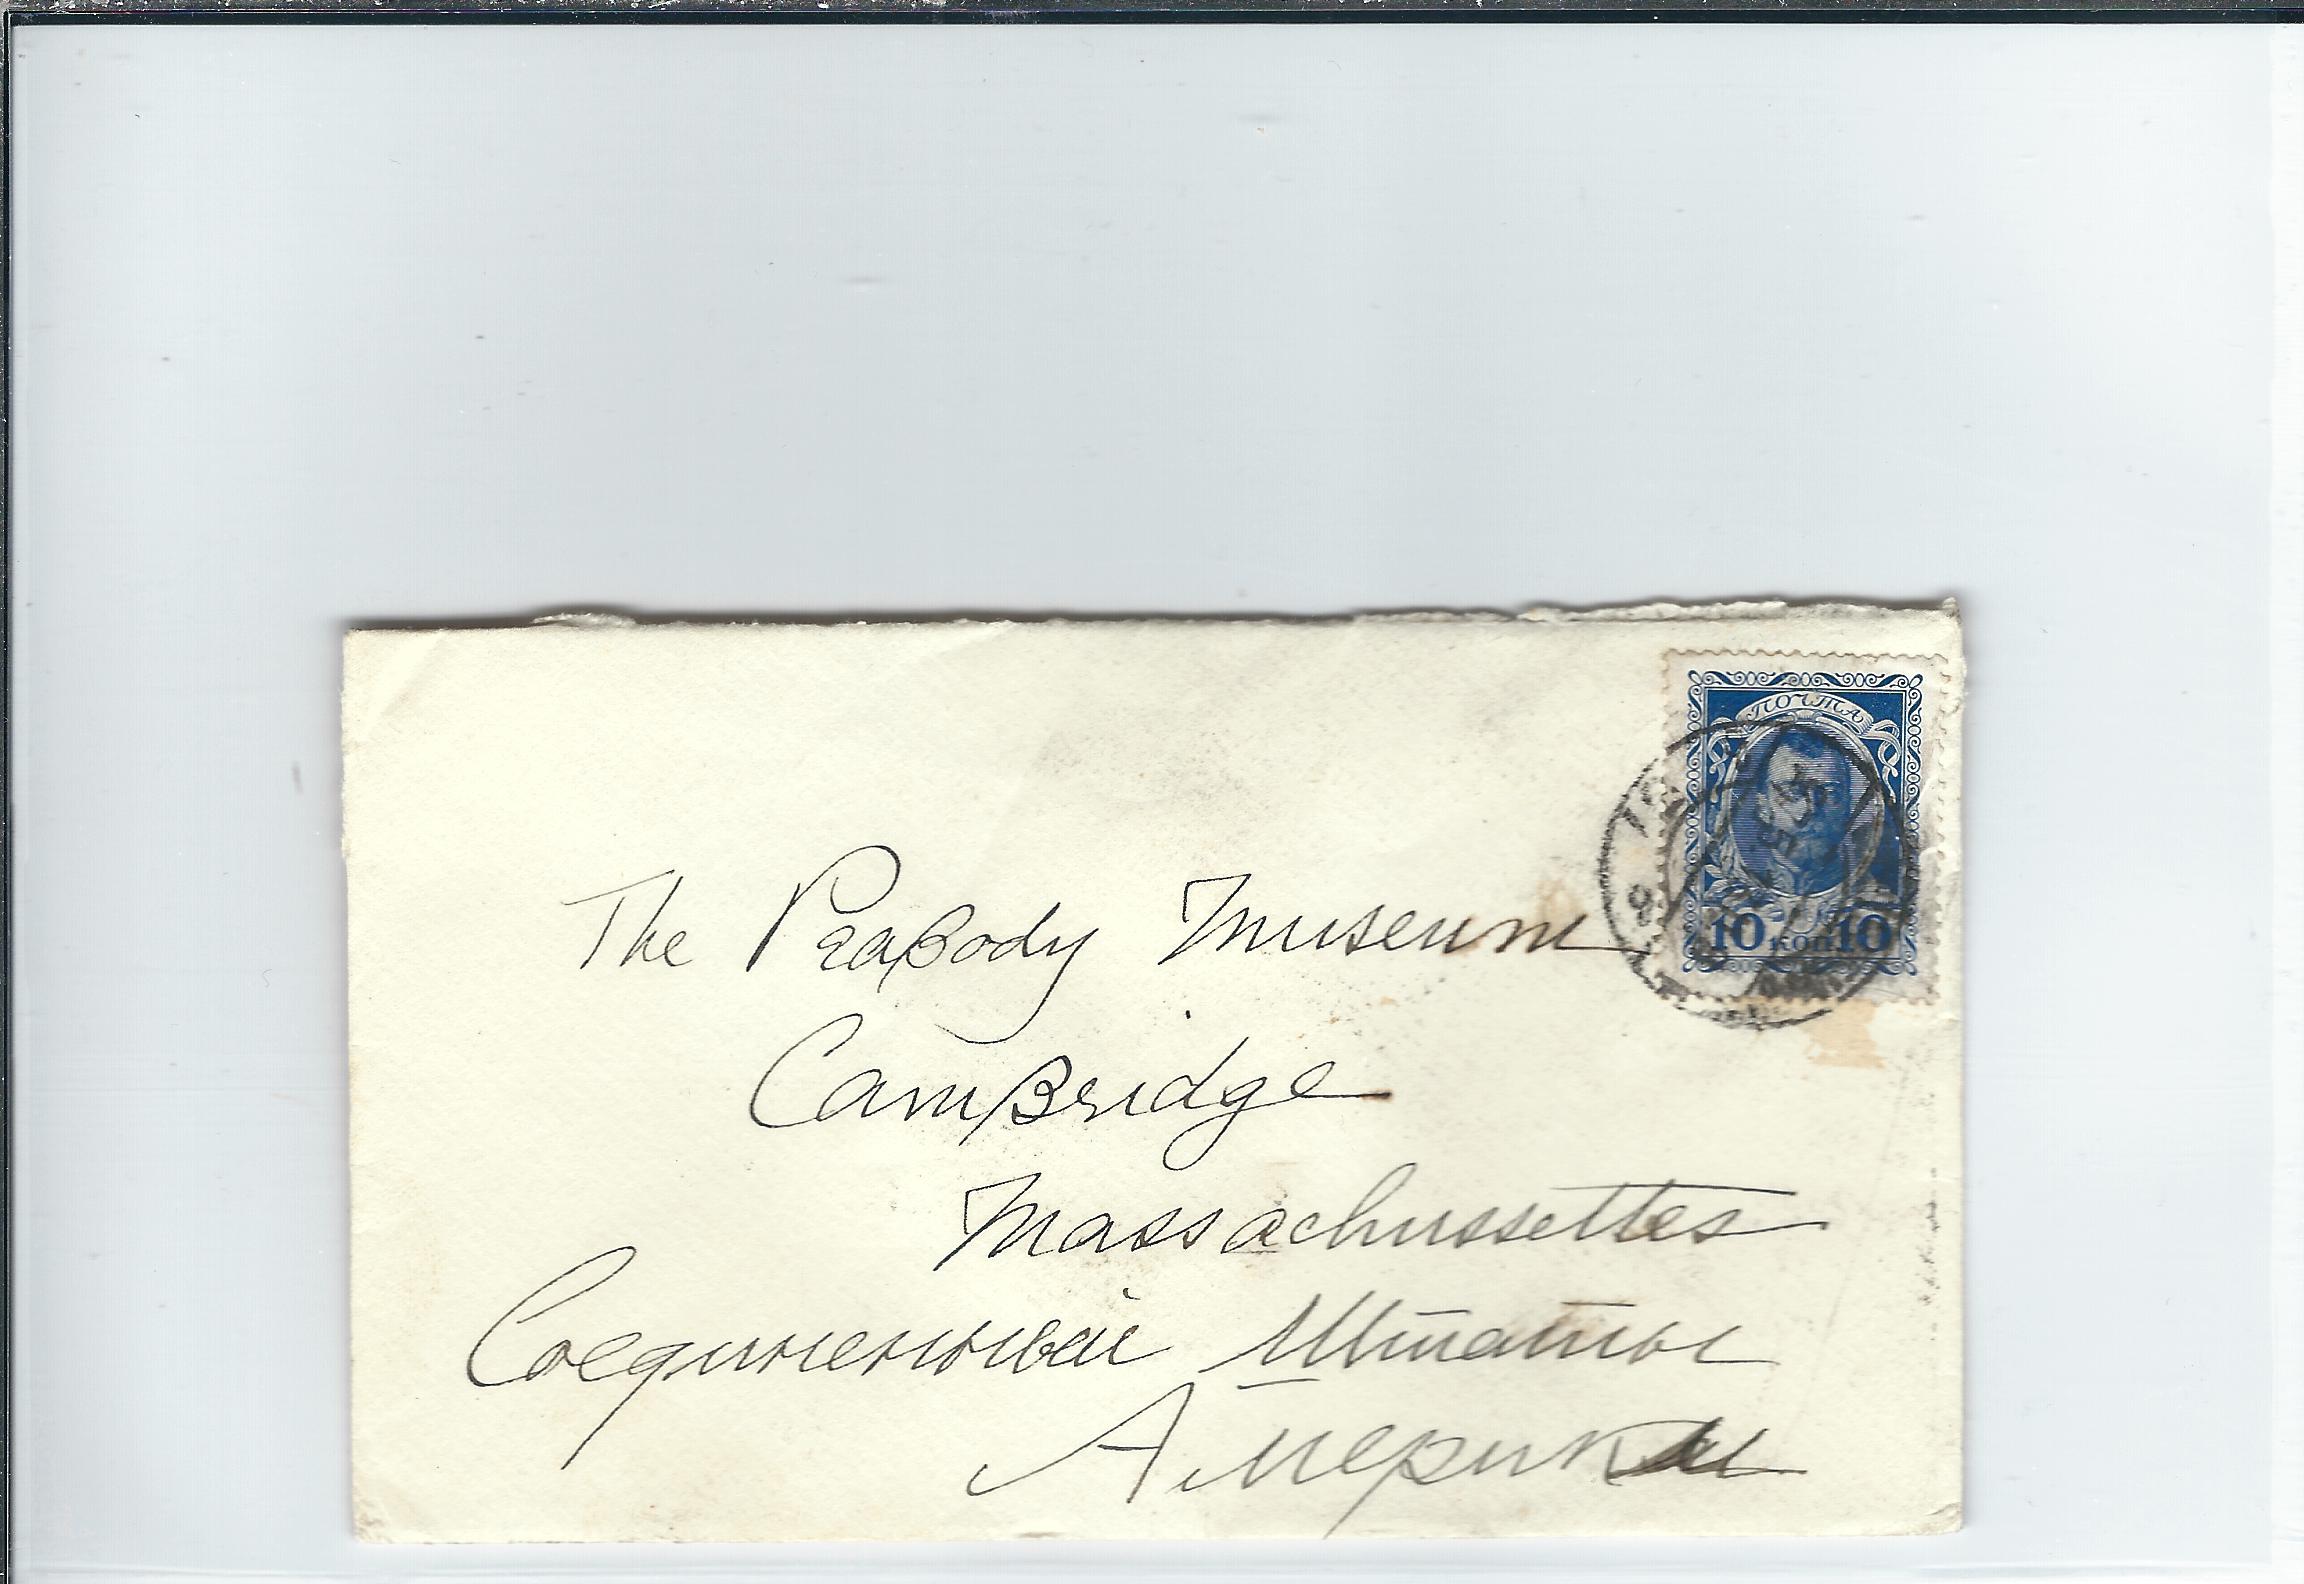 ПОЧТА
10 КОП 10
The Peabody Museum
Cambridge
Massachussettes
Соединенные Штаты
Америки